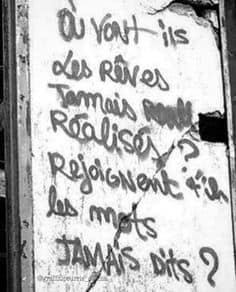 Où vont ils
Les Rêves
Jamais
Réalisés ?
Rejoignent t'ils
les mots
JAMAIS Dits ?